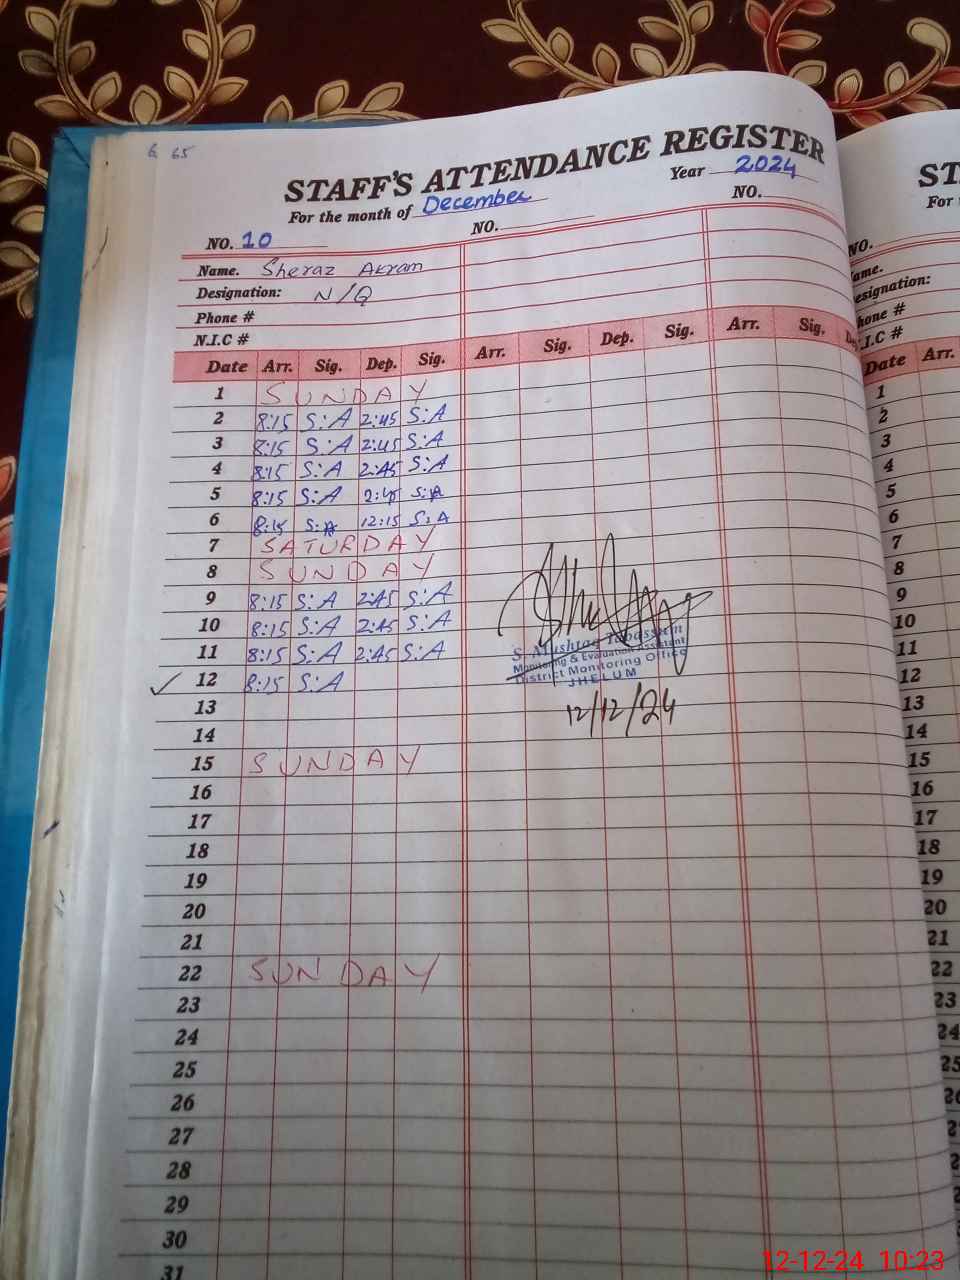 6 65
STAFF'S ATTENDANCE REGISTER
For the month of December Year 2024
NO. 10 NO. NO.
Name. Sheraz Akram
Designation: N/Q
Phone #
N.I.C #
Date Arr. Sig. Dep. Sig. Arr. Sig. Dep. Sig. Arr. Sig.
1 SUNDAY
2 8:15 S:A 2:45 S:A
3 8:15 S:A 2:45 S:A
4 8:15 S:A 2:45 S:A
5 8:15 S:A 2:45 S:A
6 8:15 S:A 12:15 S:A
7 SATURDAY
8 SUNDAY
9 8:15 S:A 2:45 S:A
10 8:15 S:A 2:45 S:A
11 8:15 S:A 2:45 S:A
12 8:15 S:A
13
14
15 SUNDAY
16
17
18
19
20
21
22 SUNDAY
23
24
25
26
27
28
29
30
31
S. Mushtaq Tabassum
Monitoring & Evaluation Assistant
District Monitoring Office
JHELUM
12/12/24
ST
For
NO.
ame.
esignation:
hone #
.I.C #
Date Arr.
1
2
3
4
5
6
7
8
9
10
11
12
13
14
15
16
17
18
19
20
21
22
23
24
25
12-12-24 10:23